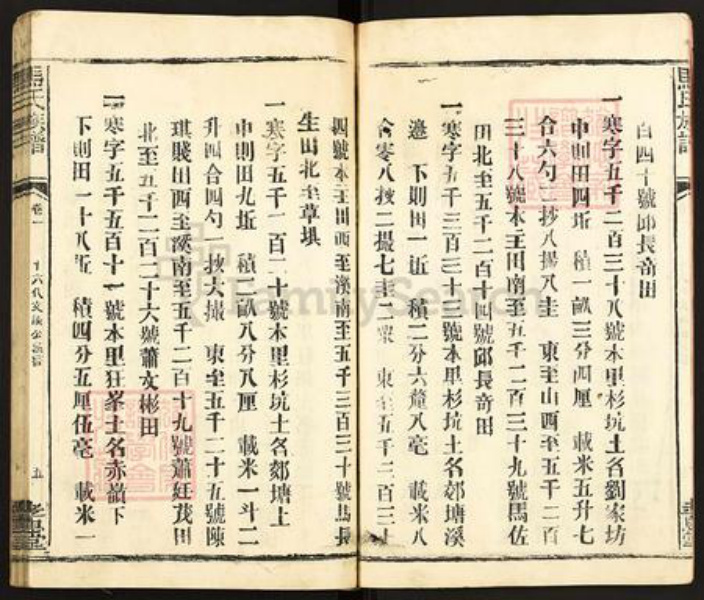 百四十號邱長奇田
一寒字五千二百三十八號本里杉坑土名劉家坊
中則田四坵 積一畝三分四厘 載米五升七
合六勺一抄八撮八圭 東至山西至五千二百
三十八號本主田南至五千二百三十九號馬佐
田北至五千二百十四號邱長奇田
一寒字五千三百三十三號本里杉坑土名郊塘溪
邊 下則田一坵 積二分六釐八毫 載米八
合零八抄二撮七圭二粟 東至五千三百三十
四號本主田西至溪南至五千三百三十號馬長
生田北至草垻
一寒字五千一百二十號本里杉坑土名郊塘上
中則田九坵 積二畝八分八厘 載米一斗二
升四合四勺 抄六撮 東至五千二十五號陳
琪賤田西至溪南至五千二百十九號蕭廷茂田
北至五千二百二十六號蕭文彬田
一寒字五千五百十一號本里狂峯土名赤嶺下
下則田一十八坵 積四分五厘伍毫 載米一
馬氏族譜
卷一
五
馬氏族譜
FamilySearch